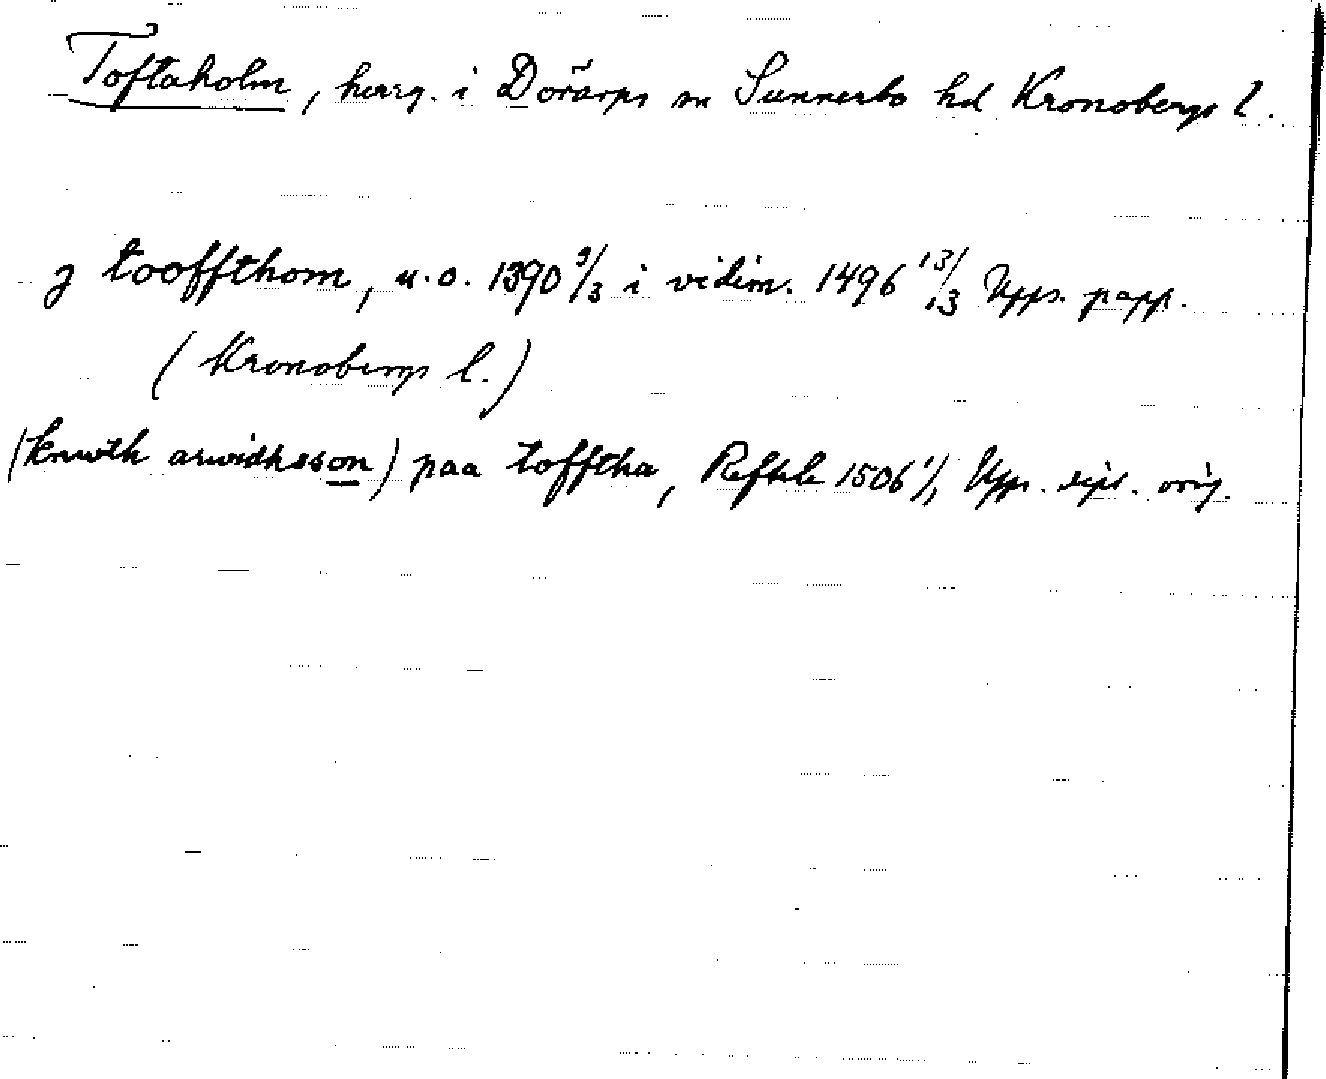 Toftaholm, herrg. i Dörarps sn Sunnerbo hd Kronobergs l.
j tooffthom, u.o. 1390 9/3 i vidim. 1496 13/3 Upps. papp.
(Kronobergs l.)
(knwth arwidhsson) paa tofftha, Reftele 1506 1/1 Upps. dipl. orig.